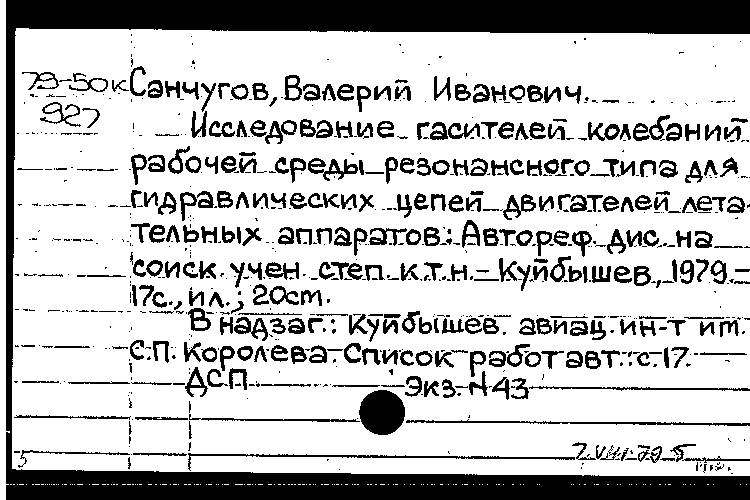 79-50к Санчугов, Валерий Иванович.
927 Исследование гасителей колебаний
рабочей среды резонансного типа для
гидравлических цепей двигателей лета-
тельных аппаратов: Автореф. дис. на
соиск. учен. степ. к.т.н. - Куйбышев, 1979. -
17с., ил.; 20cm.
В надзаг.: Куйбышев. авиац. ин-т им.
С.П. Королева. Список работ авт.: с. 17.
ДСП Экз. N43
7.VIII.79 Б
5